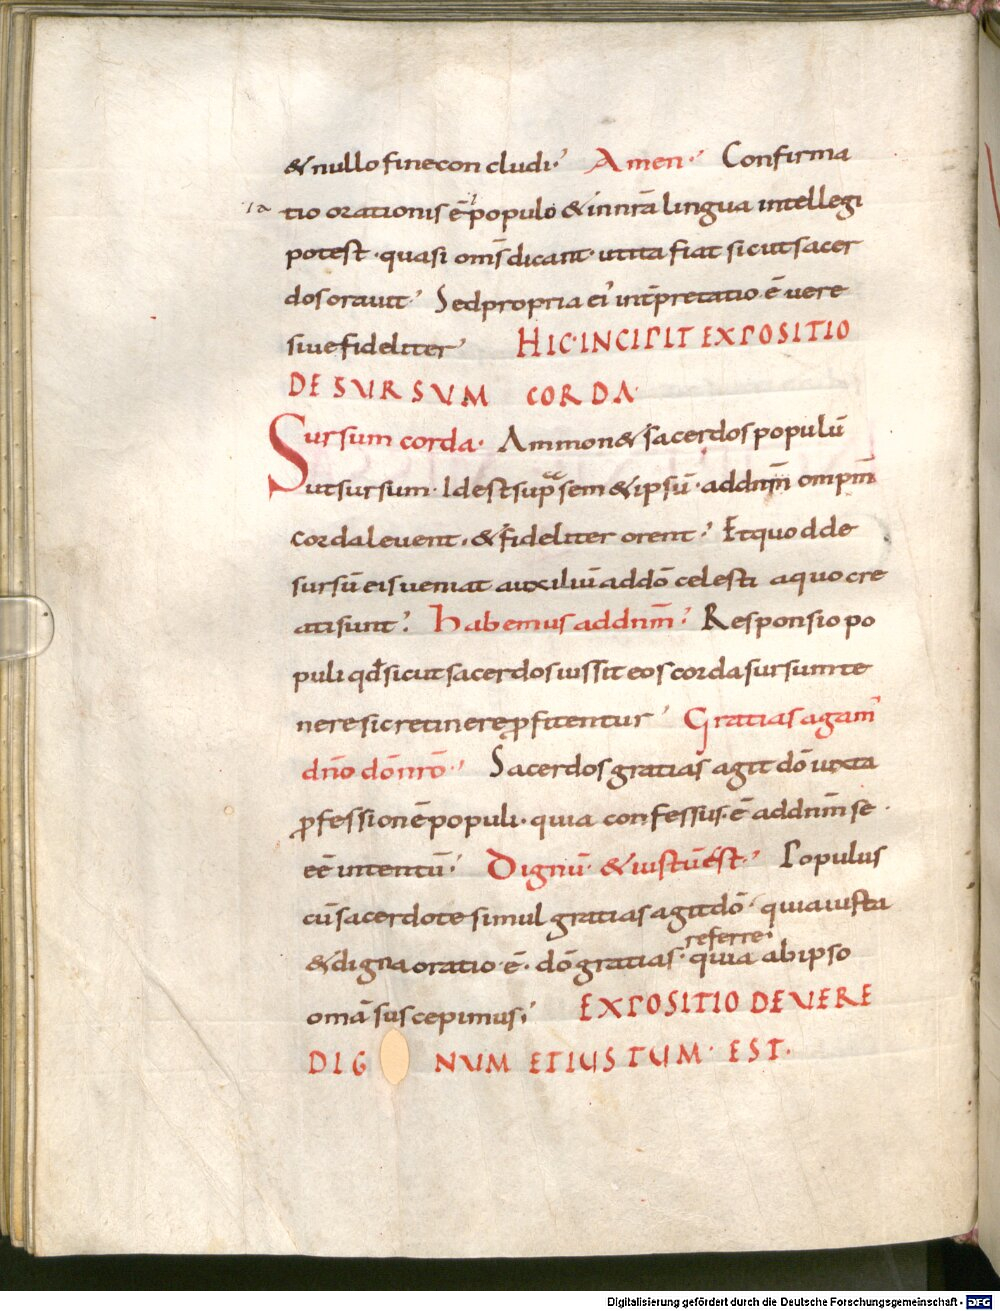 & nullo fine con cludi. Amen. Confirma
tio orationis ē populo & in nr̄a lingua intellegi
potest. quasi om̄s dicant. ut ita fiat sicut sacer
dos orauit. Sed propria ei' int̄pretatio ē uere
siue fideliter HIC·INCIPIT EXPOSITIO
DE SURSUM CORDA·
Sursum corda. Ammon& sacerdos populū
ut sursum. Id est sup̄ sem&ipsū. ad dn̄m omp̄m
corda leuent. & fideliter orent. Et quod de
sursū eis ueniat auxiliū ad dō celesti a quo cre
ati sunt. habemus ad dn̄m. Responsio po
puli qd̄ sicut sacerdos iussit eos corda sursum te
nere sic retinere ꝓfitentur Gratias agam̄
dn̄o dō nr̄o. Sacerdos gratias agit dō iuxta
ꝓfessionē populi. quia confessus. ē ad dn̄m se
eē intentū. Dignū. & iustū est. Populus
cū sacerdote simul gratias agit dō. quia iusta
& digna oratio. ē. dō gratias. referre. quia ab ipso
omā suscepimus; EXPOSITIO DE UERE
DIG NUM ET IUSTUM· EST.
Digitalisierung gefördert durch die Deutsche Forschungsgemeinschaft - DFG